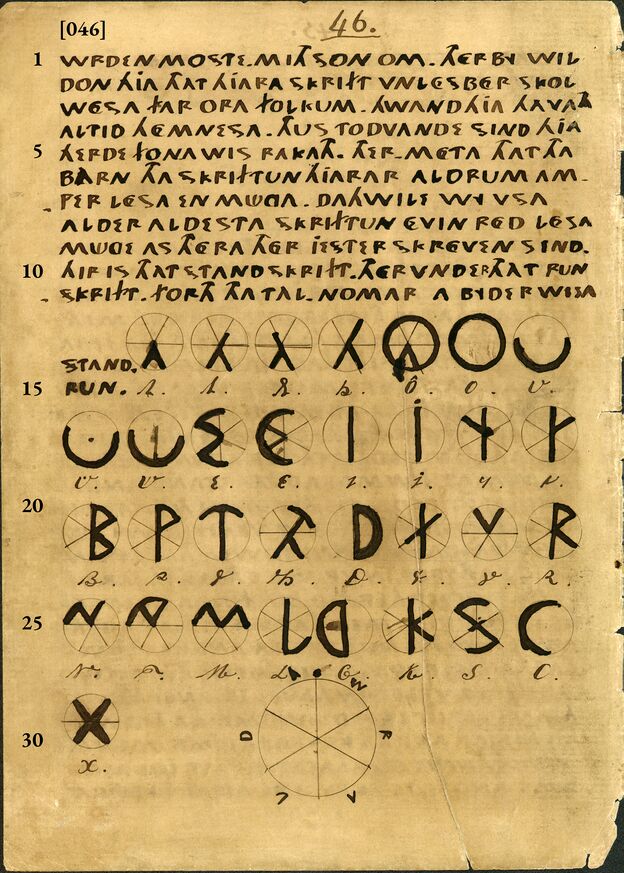 [046]
46.
1 WRDEN MOSTE. MITH SON OM. THER BY WIL
DON HIA THAT HIARA SKRIFT VNLESBER SKOL
WESA FAR ORA FOLKUM. HWAND HIA HAVATH
ALTID HEMNESA. THUS TODVANDE SIND HIA
5 HERDE FONA WIS RAKATH. THER-META THAT THA
BARN THA SKRIFTUN HIARAR ALDRUM AM-
PER LESA EN MUGA. DAHWILE WY VSA
ALDER ALDESTA SKRIFTUN EVIN RED LESA
MUGE AS THERA THER JESTER SKREVEN SIND.
10 HIR IS THAT STANDSKRIFT. THERVNDER THAT RUN
SKRIFT. FORTH THA TAL-NOMAR A BYDER WISA
STAND. A Â O Ô O O U
15 RUN. A. Ô. O. U.
V W E E I J Y
V. W. E. E. I. J. Y.
20 B P T TH D F V R
B. P. T. Th. D. F. V. R.
25 N M L G K S C
N. M. L. G. K. S. C.
30 X
X.